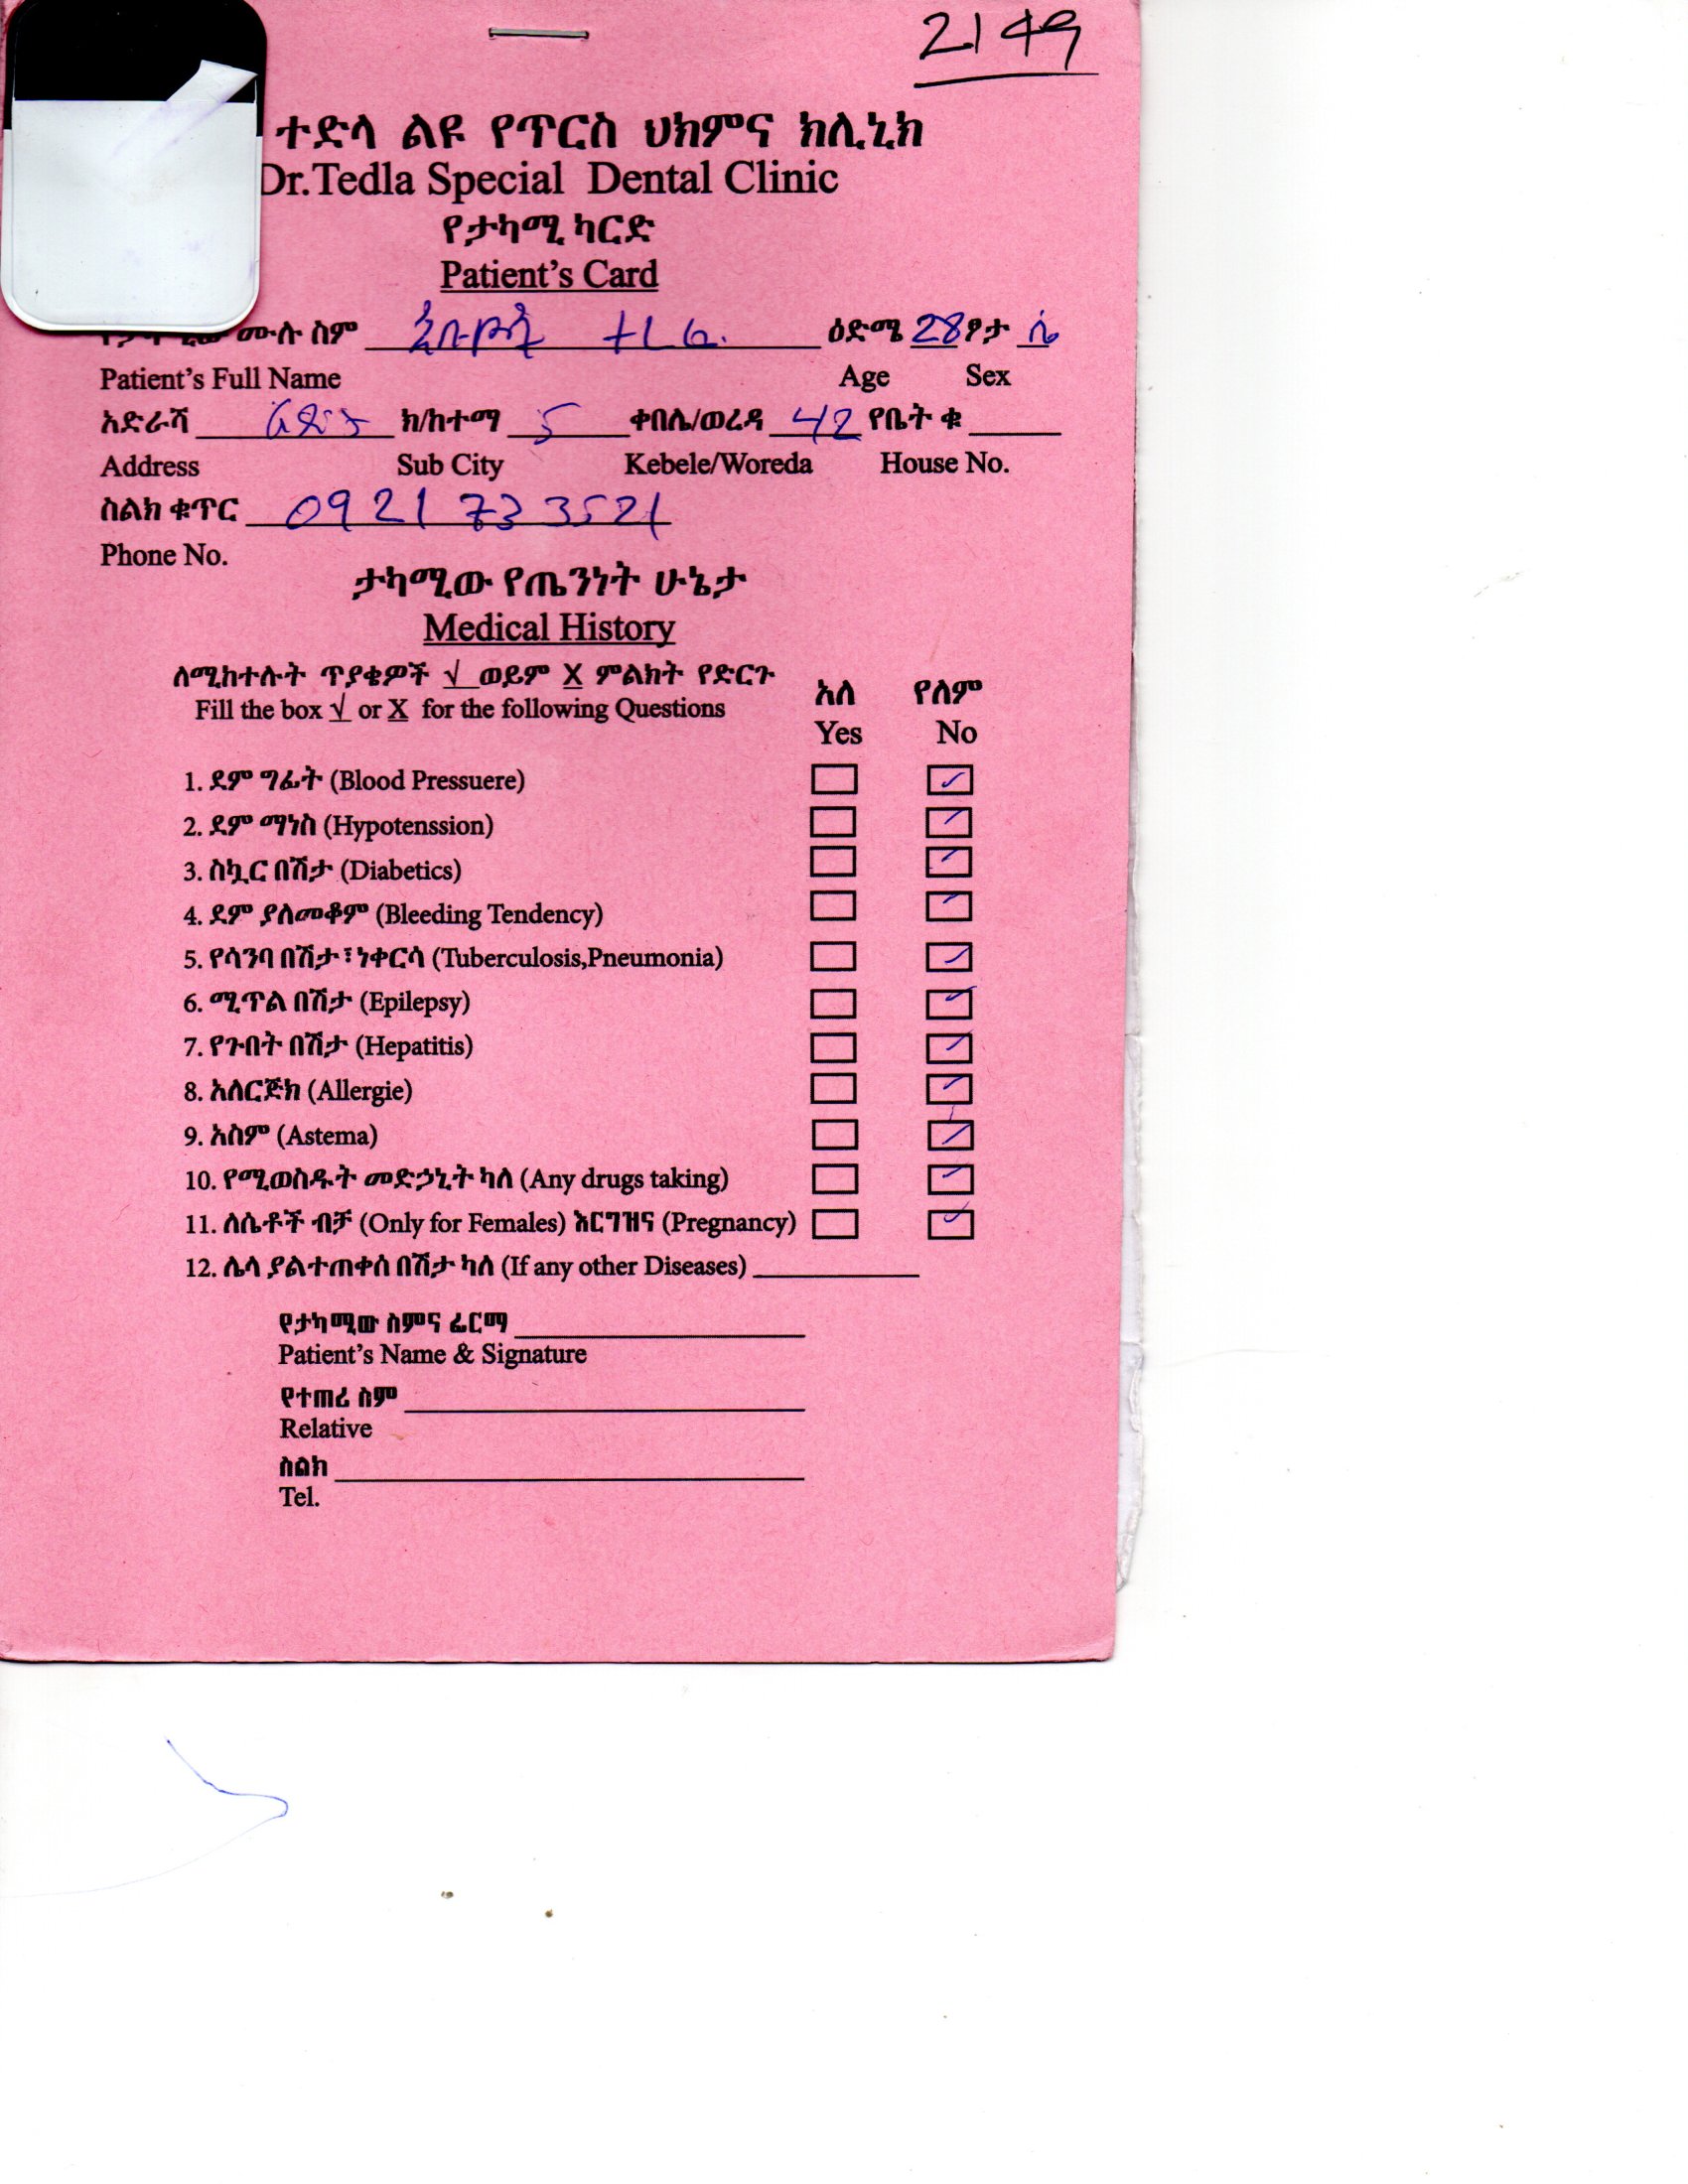 2149
ተድላ ልዩ የጥርስ ህክምና ክሊኒክ
Dr.Tedla Special Dental Clinic
የታካሚ ካርድ
Patient's Card
ሙሉ ስም ዕድሜ 28 ፆታ ሴ
Patient's Full Name Age Sex
አድራሻ ክ/ከተማ 5 ቀበሌ/ወረዳ 42 የቤት ቁ
Address Sub City Kebele/Woreda House No.
ስልክ ቁጥር 0921 73 3521
Phone No.
ታካሚው የጤንነት ሁኔታ
Medical History
ለሚከተሉት ጥያቄዎች √ ወይም X ምልክት የድርጉ አለ የለም
Fill the box √ or X for the following Questions Yes No
1. ደም ግፊት (Blood Pressuere) ✓
2. ደም ማነስ (Hypotenssion) ✓
3. ስኳር በሽታ (Diabetics) ✓
4. ደም ያለመቆም (Bleeding Tendency) ✓
5. የሳንባ በሽታ፣ነቀርሳ (Tuberculosis,Pneumonia) ✓
6. ሚጥል በሽታ (Epilepsy) ✓
7. የጉበት በሽታ (Hepatitis) ✓
8. አለርጅክ (Allergie) ✓
9. አስም (Astema) ✓
10. የሚወስዱት መድኃኒት ካለ (Any drugs taking) ✓
11. ለሴቶች ብቻ (Only for Females) እርግዝና (Pregnancy) ✓
12. ሌላ ያልተጠቀሰ በሽታ ካለ (If any other Diseases)
የታካሚው ስምና ፊርማ
Patient's Name & Signature
የተጠሪ ስም
Relative
ስልክ
Tel.